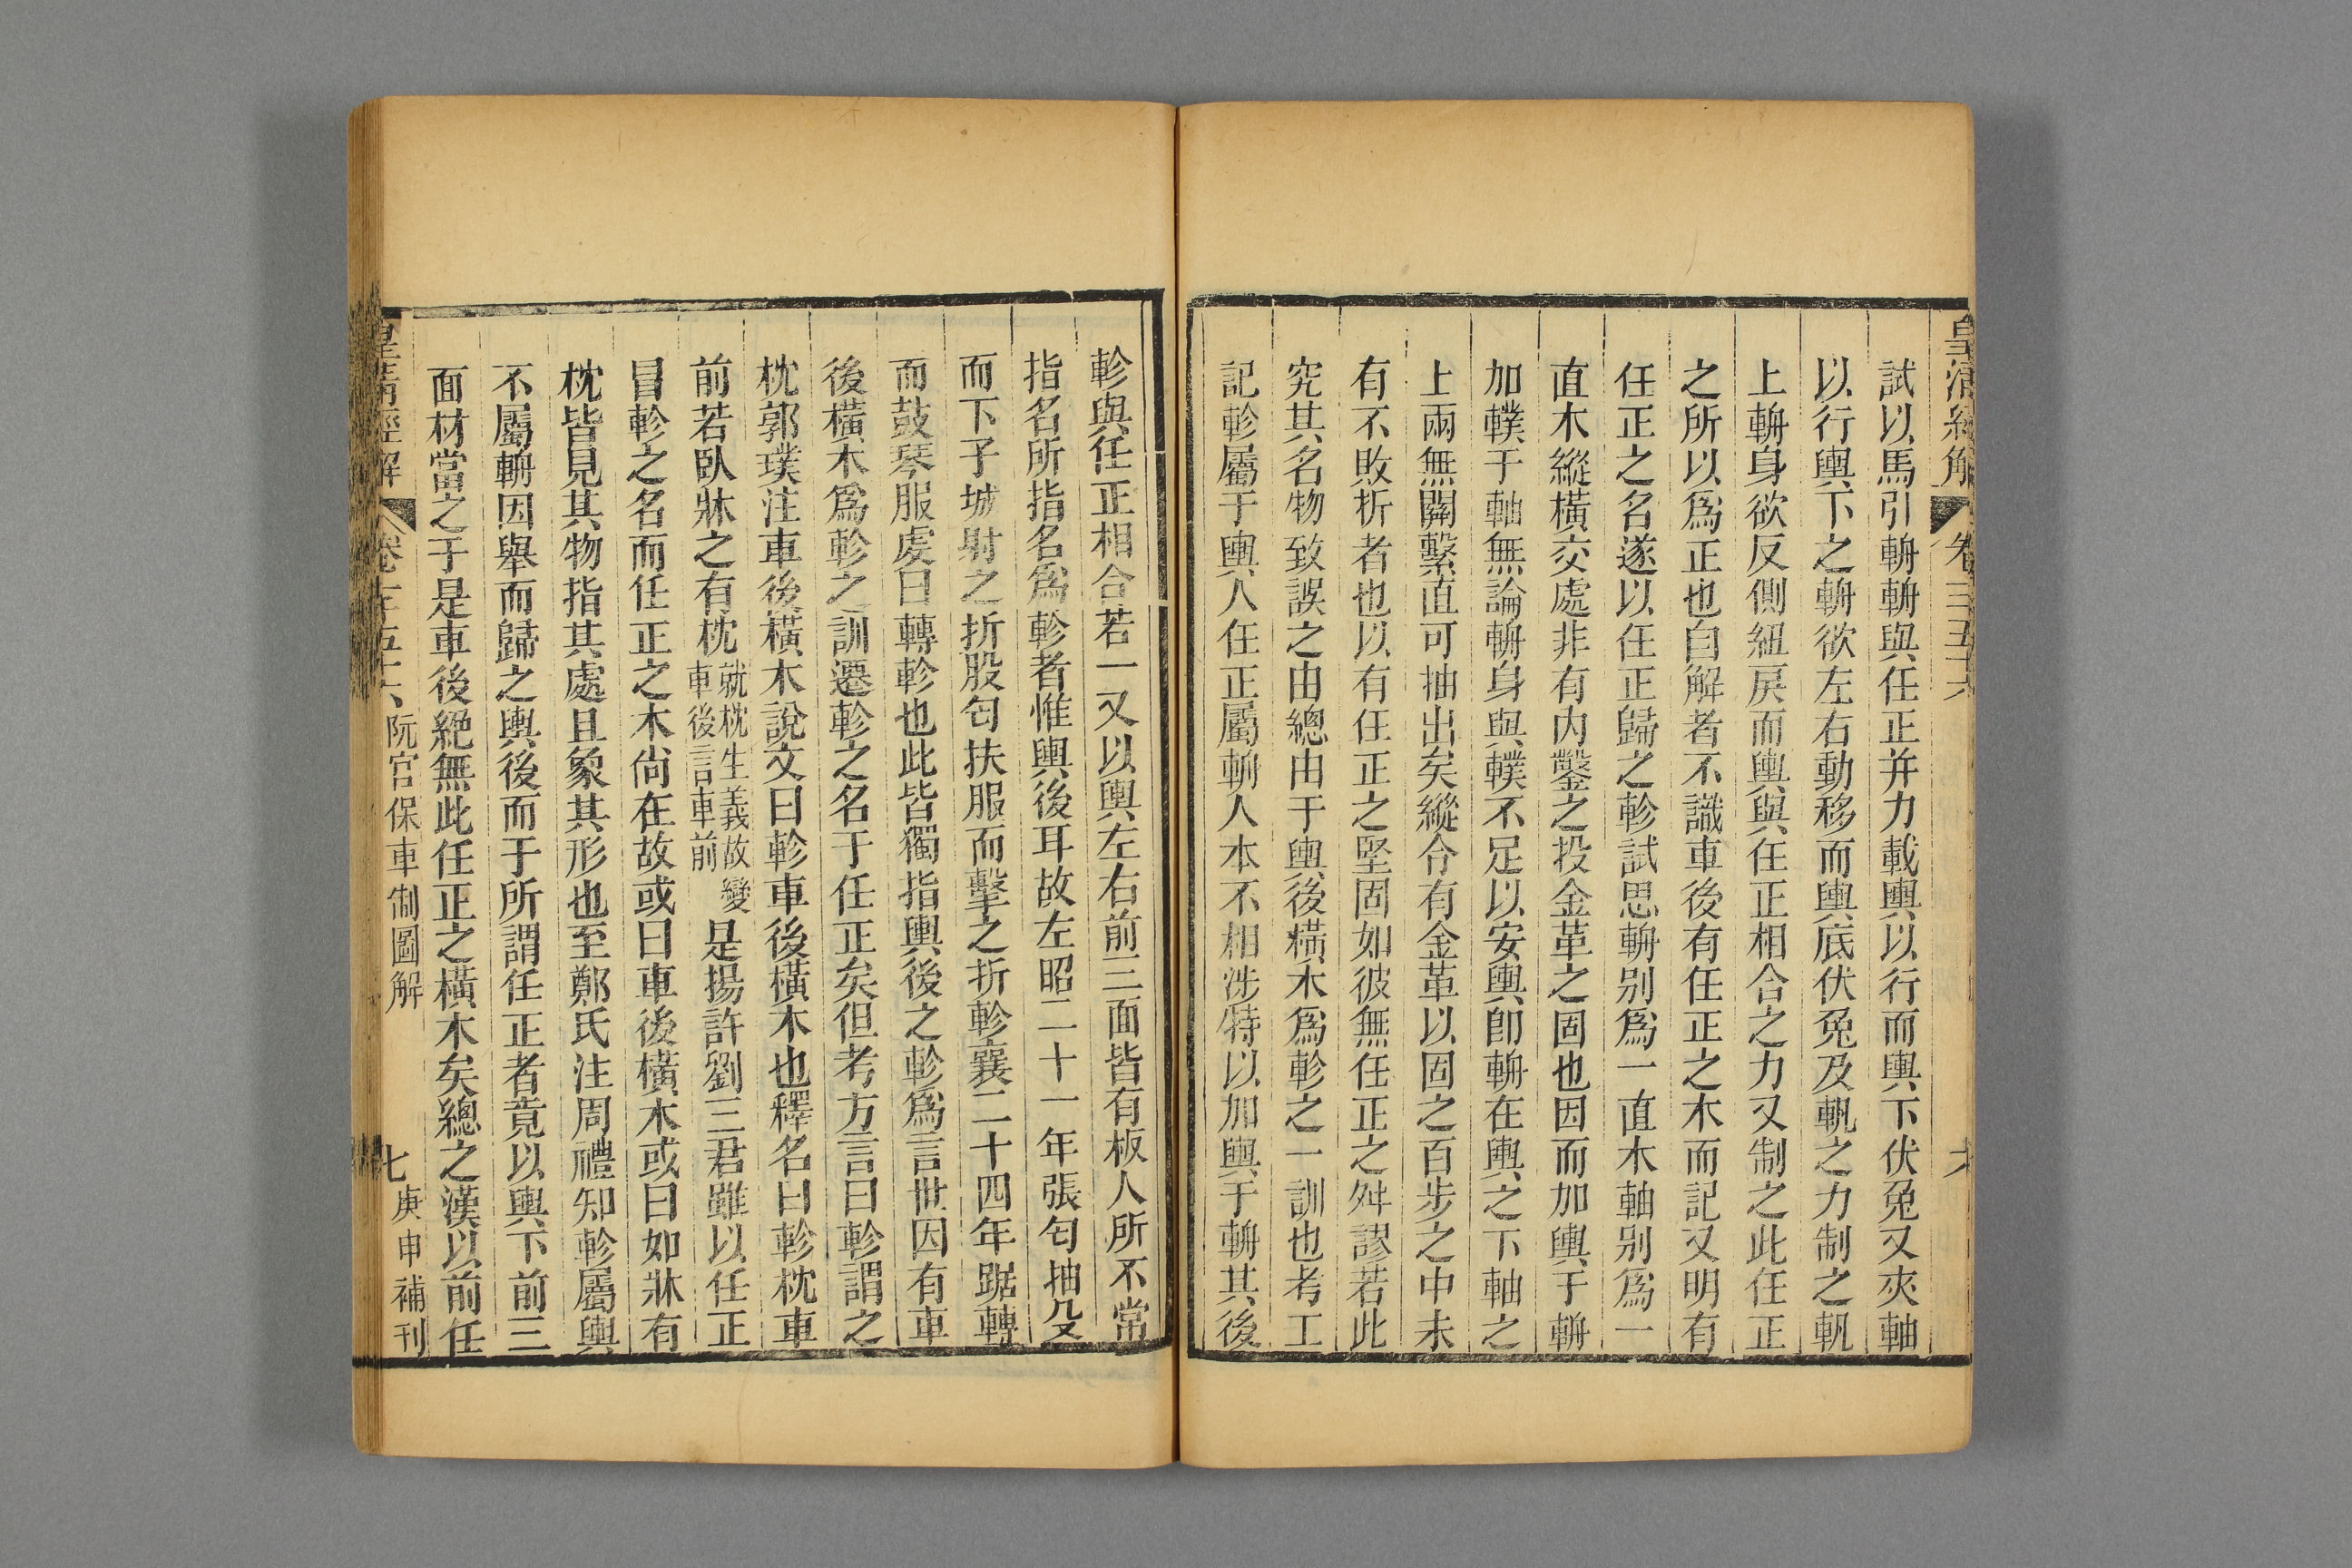 皇清經解 卷
試以馬引輈輈與任正并力載輿以行而輿下伏兔又夾軸
以行輿下之輈欲左右動移而輿底伏兔及軓之力制之軓
上輈身欲反側紐戾而輿與任正相合之力又制之此任正
之所以爲正也自解者不識車後有任正之木而記又明有
任正之名遂以任正歸之軫試思輈別爲一直木軸別爲一
直木縱橫交處非有內鑿之投金革之固也因而加輿于輈
加轐于軸無論輈身與轐不足以安輿卽輈在輿之下軸之
上兩無關繫直可抽出矣縱令有金革以固之百步之中未
有不敗折者也以有任正之堅固如彼無任正之舛謬若此
究其名物致誤之由總由于輿後橫木爲軫之一訓也考工
記軫屬于輿人任正屬輈人本不相涉特以加輿于輈其後
軫與任正相合若一又以輿左右前三面皆有板人所不常
指名所指名爲軫者惟輿後耳故左昭二十一年張匄抽殳
而下子城射之折股匄扶服而擊之折軫襄二十四年踞轉
而鼓琴服虔曰轉軫也此皆獨指輿後之軫爲言世因有車
後橫木爲軫之訓遷軫之名于任正矣但考方言曰軫謂之
枕郭璞注車後橫木說文曰軫車後橫木也釋名曰軫枕車
前若臥牀之有枕就枕生義故變車後言車前是揚許劉三君雖以任正
冒軫之名而任正之木尙在故或曰車後橫木或曰如牀有
枕皆見其物指其處且象其形也至鄭氏注周禮知軫屬輿
不屬輈因舉而歸之輿後而于所謂任正者竟以輿下前三
面材當之于是車後絕無此任正之橫木矣總之漢以前任
皇清經解 卷千五十六 阮宮保車制圖解 七 庚申補刊